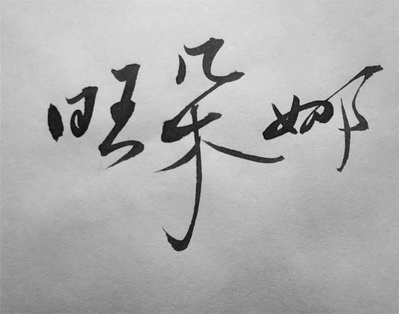 旺朵娜